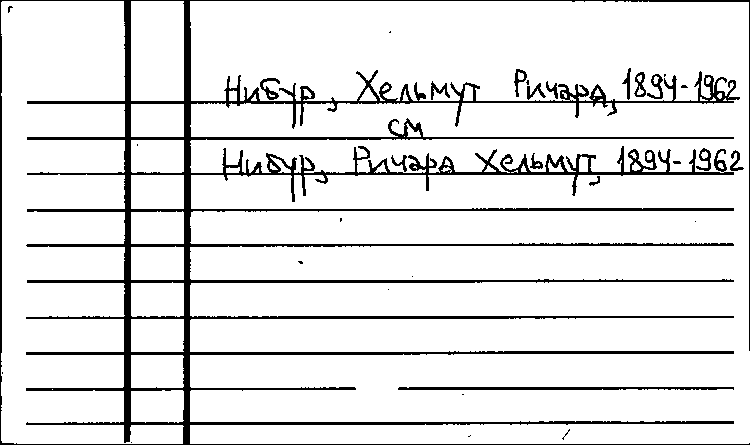 Нибур, Хельмут Ричард, 1894-1962
см
Нибур, Ричард Хельмут, 1894-1962